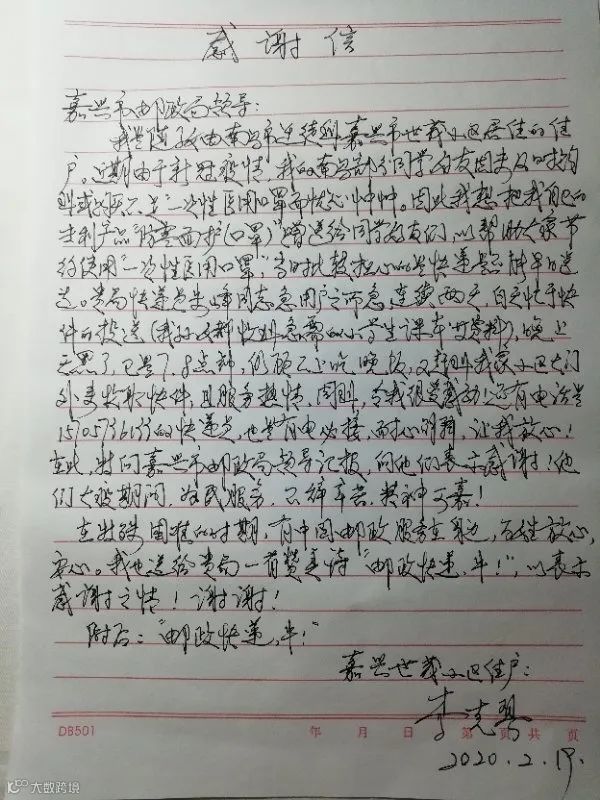 感谢信
嘉兴市邮政局领导：
我是随子女由南昌市迁徙到嘉兴市世茂小区居住的住
户。近期由于新冠疫情，我的南昌部分同学好友因未及时购
到或购不足"一次性医用口罩"而忧心忡忡。因此我想把我自己的
专利产品"防雾面护(口罩)"赠送给同学好友们，以帮助大家节
约使用"一次性医用口罩"，当时比较担心的是快递是否能早日送
达。贵局快递员朱峰同志急用户之所急，连续两天，白天忙于快
件的投送(我孙女都收到急需的小学生课本资料)，晚上
天黑了，已是7、8点钟，仍顾不上吃晚饭，又赶到我家小区大门
外来收取快件，且服务热情、周到，令我很受感动！还有电话是
的快递员，也是有电必接，耐心明确，让我放心！
在此，特向嘉兴市邮政局领导汇报，向他们表示感谢！他
们大疫期间，为民服务，不辞辛苦，精神可嘉！
在此特殊困难的时期，有中国邮政服务在身边，百姓放心，
安心。我也送给贵局一首赞美诗"邮政快递，牛！"，以表示
感谢之情！谢谢！
附后："邮政快递，牛！"
嘉兴世茂小区住户：
李克
DB501 年 月 日 第 页 共 页
2020.2.19.
大数跨境